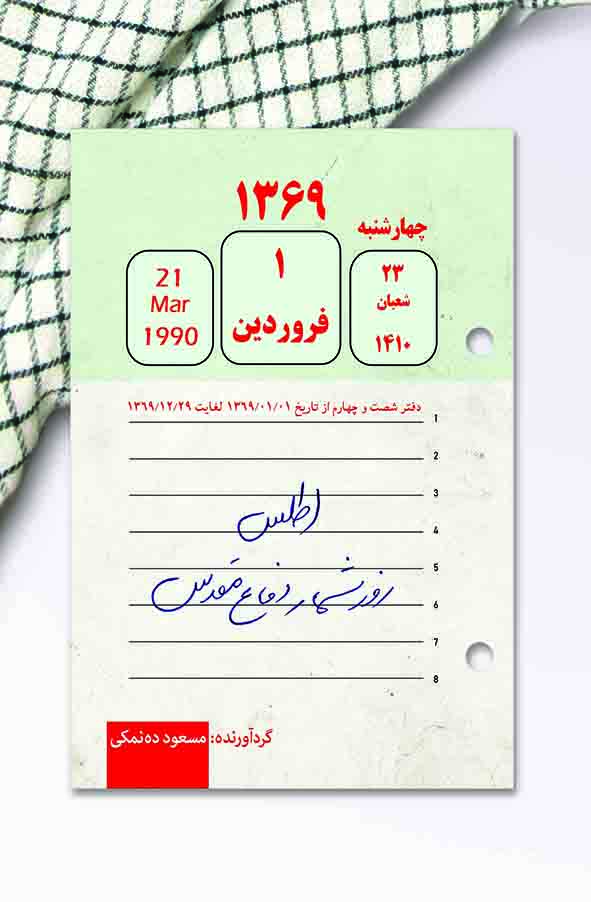 ۱۳۶۹
چهارشنبه
۲۳
شعبان
۱۴۱۰
۱
فروردین
21
Mar
1990
دفتر شصت و چهارم از تاریخ ۱۳۶۹/۰۱/۰۱ لغایت ۱۳۶۹/۱۲/۲۹
1
2
3
اطلس
4
5
روزشمار دفاع مقدس
6
7
8
گردآورنده: مسعود ده‌نمکی